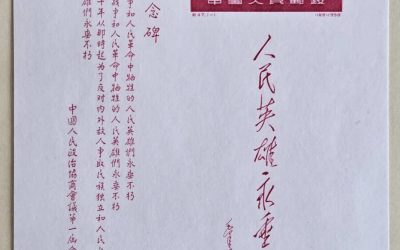 人民英雄永垂
念碑
争和人民革命中牺牲的人民英雄們永垂不朽
战争和人民革命中牺牲的人民英雄們永垂不朽
十年从那時起为了反对内外敌人争取民族独立和人民
雄們永垂不朽
中國人民政治協商會議第一屆